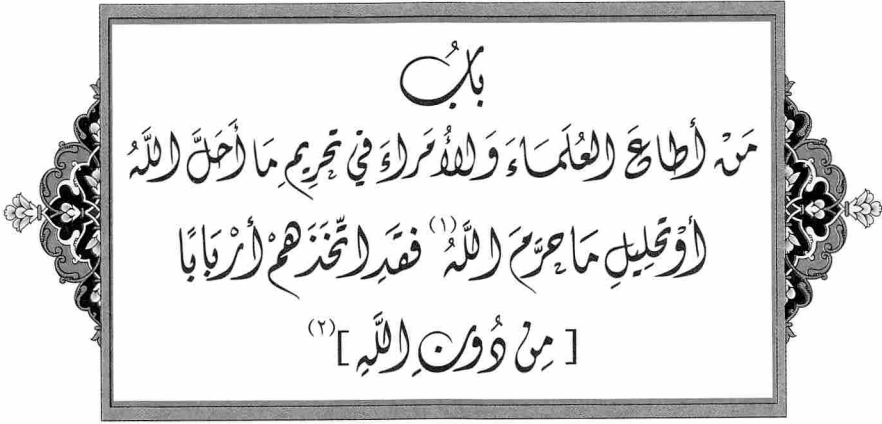 بابُ
مَنْ أطاعَ العُلَمَاءَ وَالأُمَراءَ في تحْرِيمِ مَا أَحَلَّ اللَّهُ
أوْ تحْلِيلِ مَا حرَّمَ اللَّهُ (١) فقَدِ اتّخَذَهمْ أرْبَابًا
[ مِن دُونِ اللَّهِ ] (٢)